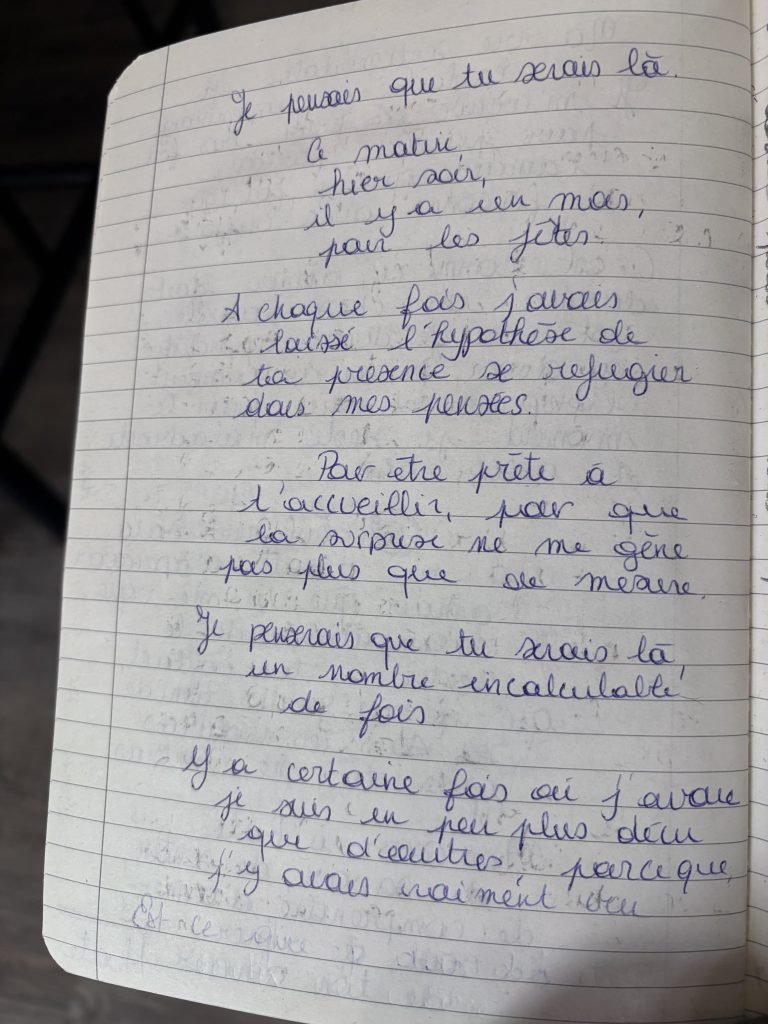 Je pensais que tu serais là.
Ce matin,
hier soir,
il y a un mois,
pour les fêtes.
A chaque fois j'avais
laissé l'hypothèse de
ta présence se refugier
dans mes pensées.
Pour être prête à
t'accueillir, pour que
la surprise ne me gène
pas plus que de mesure.
Je penserais que tu serais là,
un nombre incalculable
de fois
Y a certaine fois où j'avoue
je suis un peu plus décu
que d'autres, parce que
j'y avais vraiment cru
Est-ce que